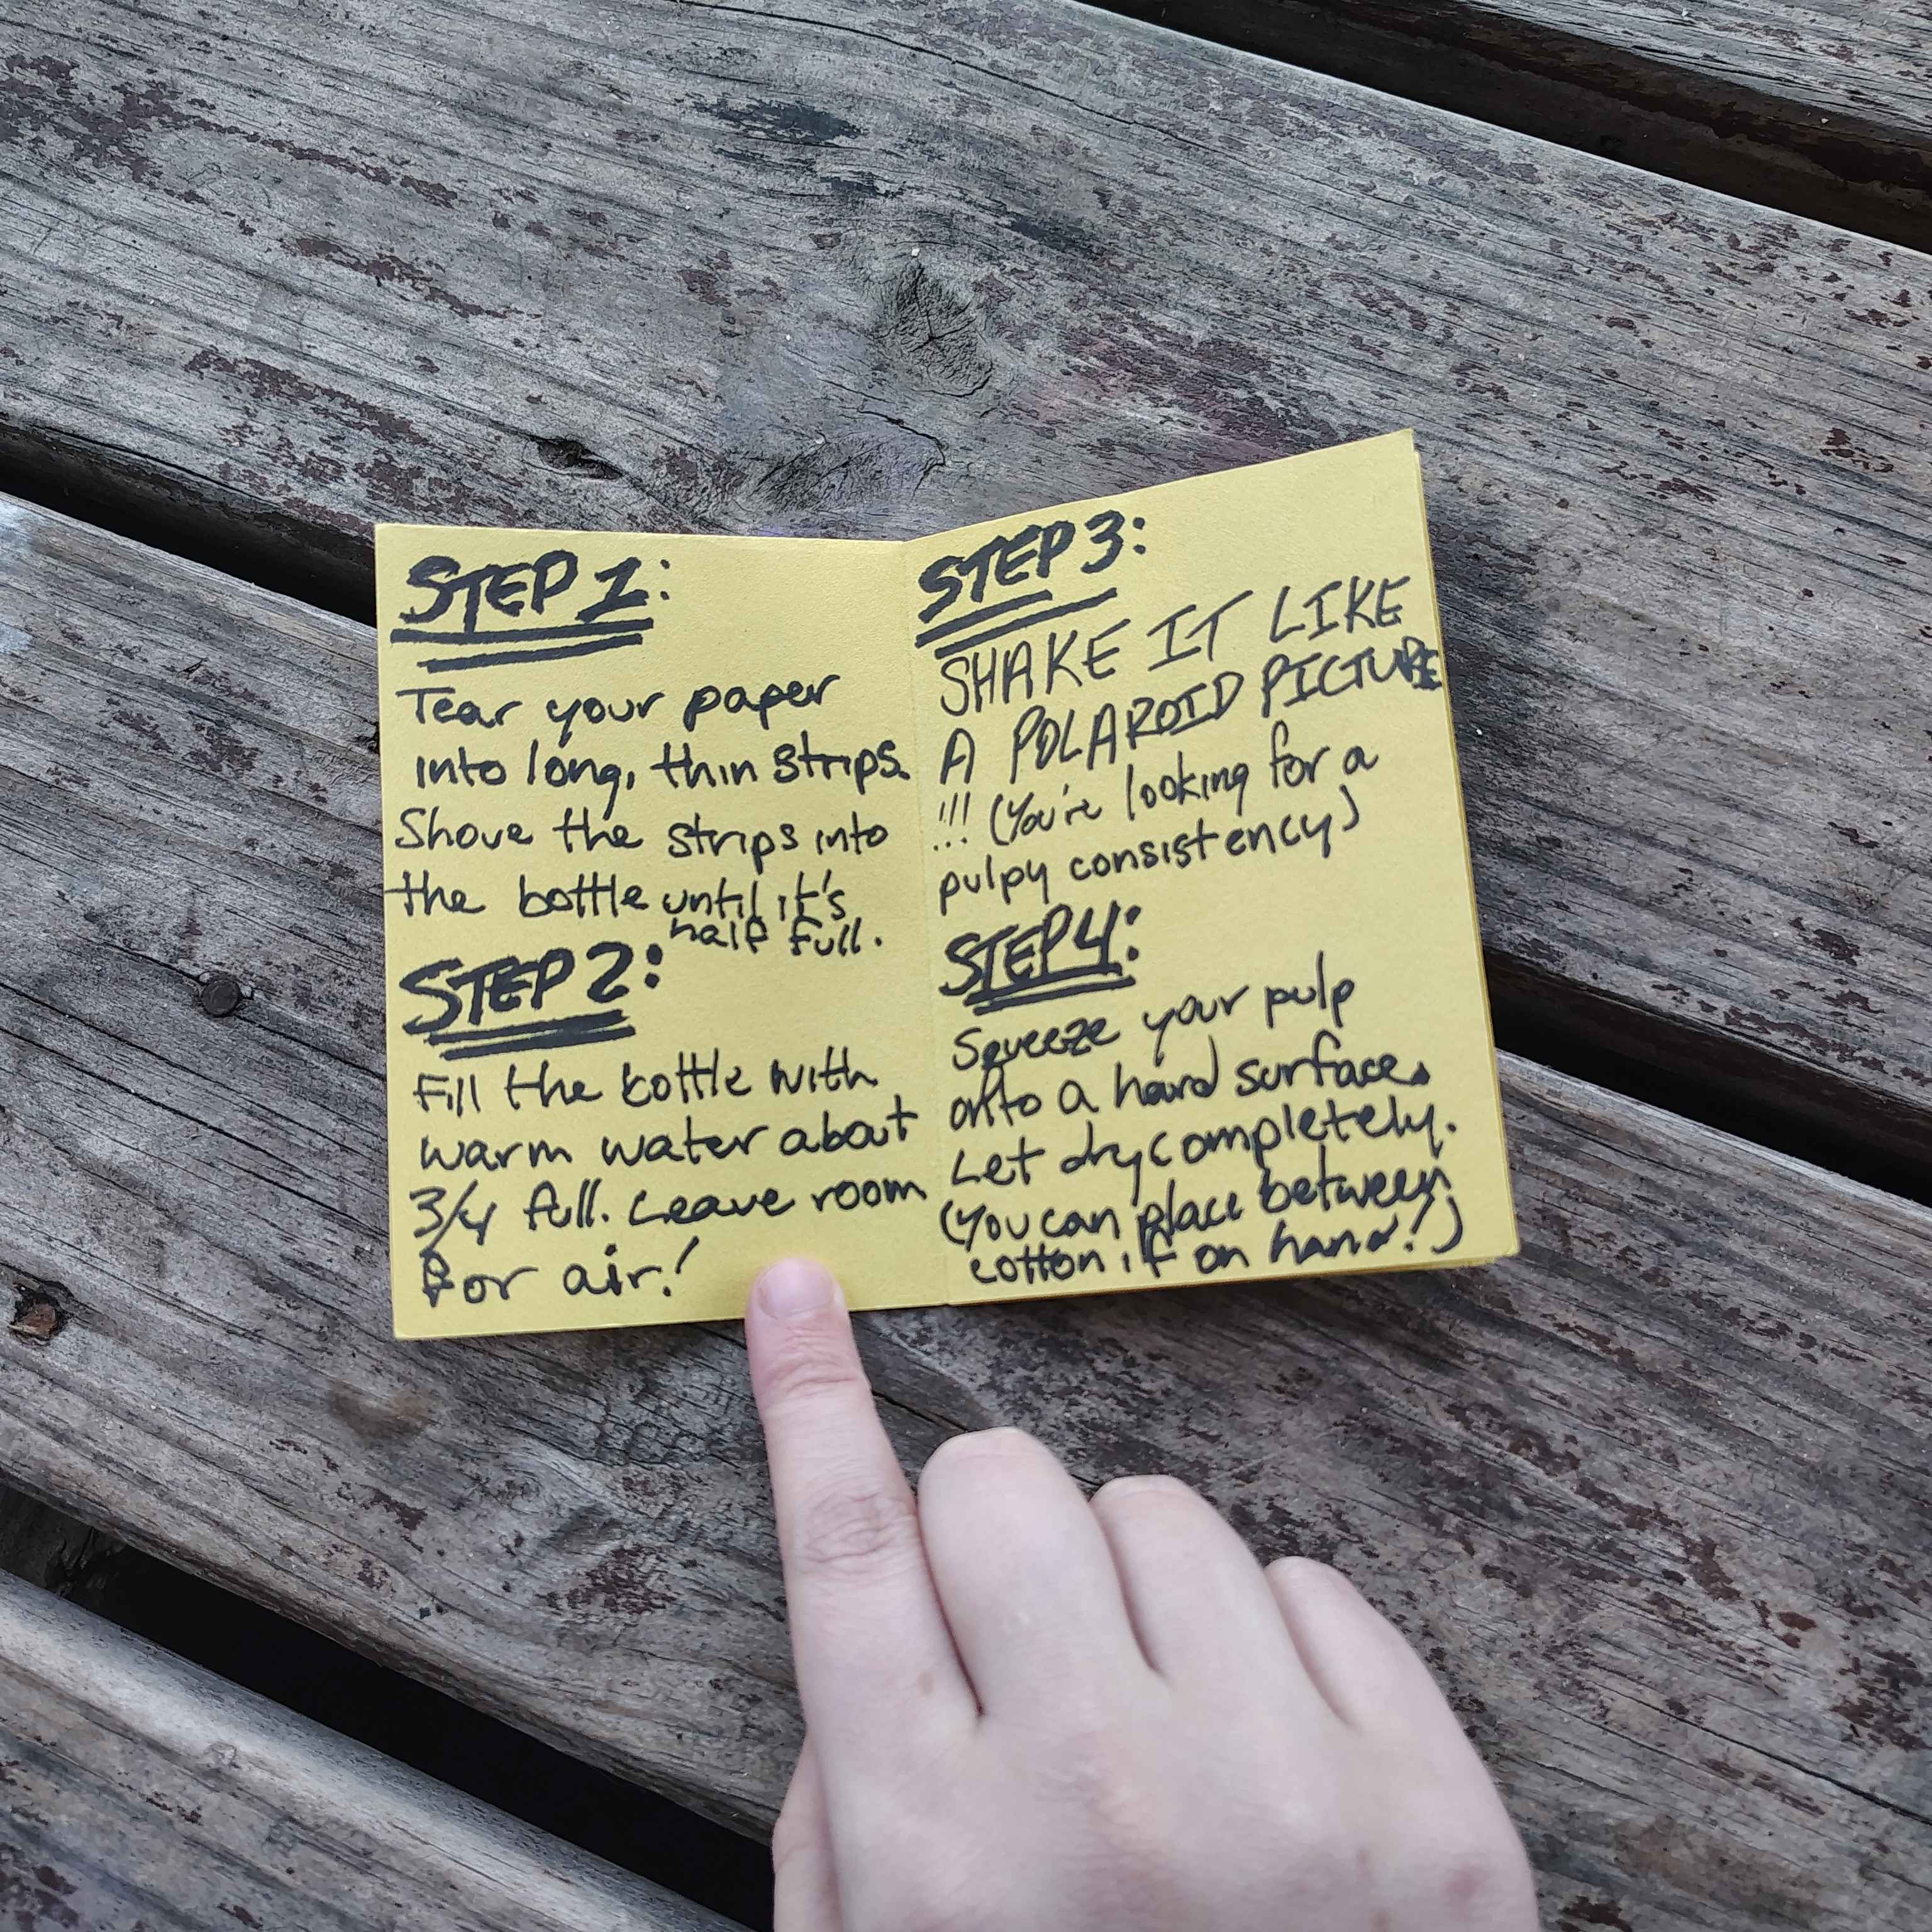 STEP 1:
Tear your paper
into long, thin strips.
Shove the strips into
the bottle until it's
half full.
STEP 2:
Fill the bottle with
warm water about
3/4 full. Leave room
for air!
STEP 3:
SHAKE IT LIKE
A POLAROID PICTURE
!!! (You're looking for a
pulpy consistency)
STEP 4:
Squeeze your pulp
onto a hard surface.
Let dry completely.
(You can place between
cotton if on hand!)